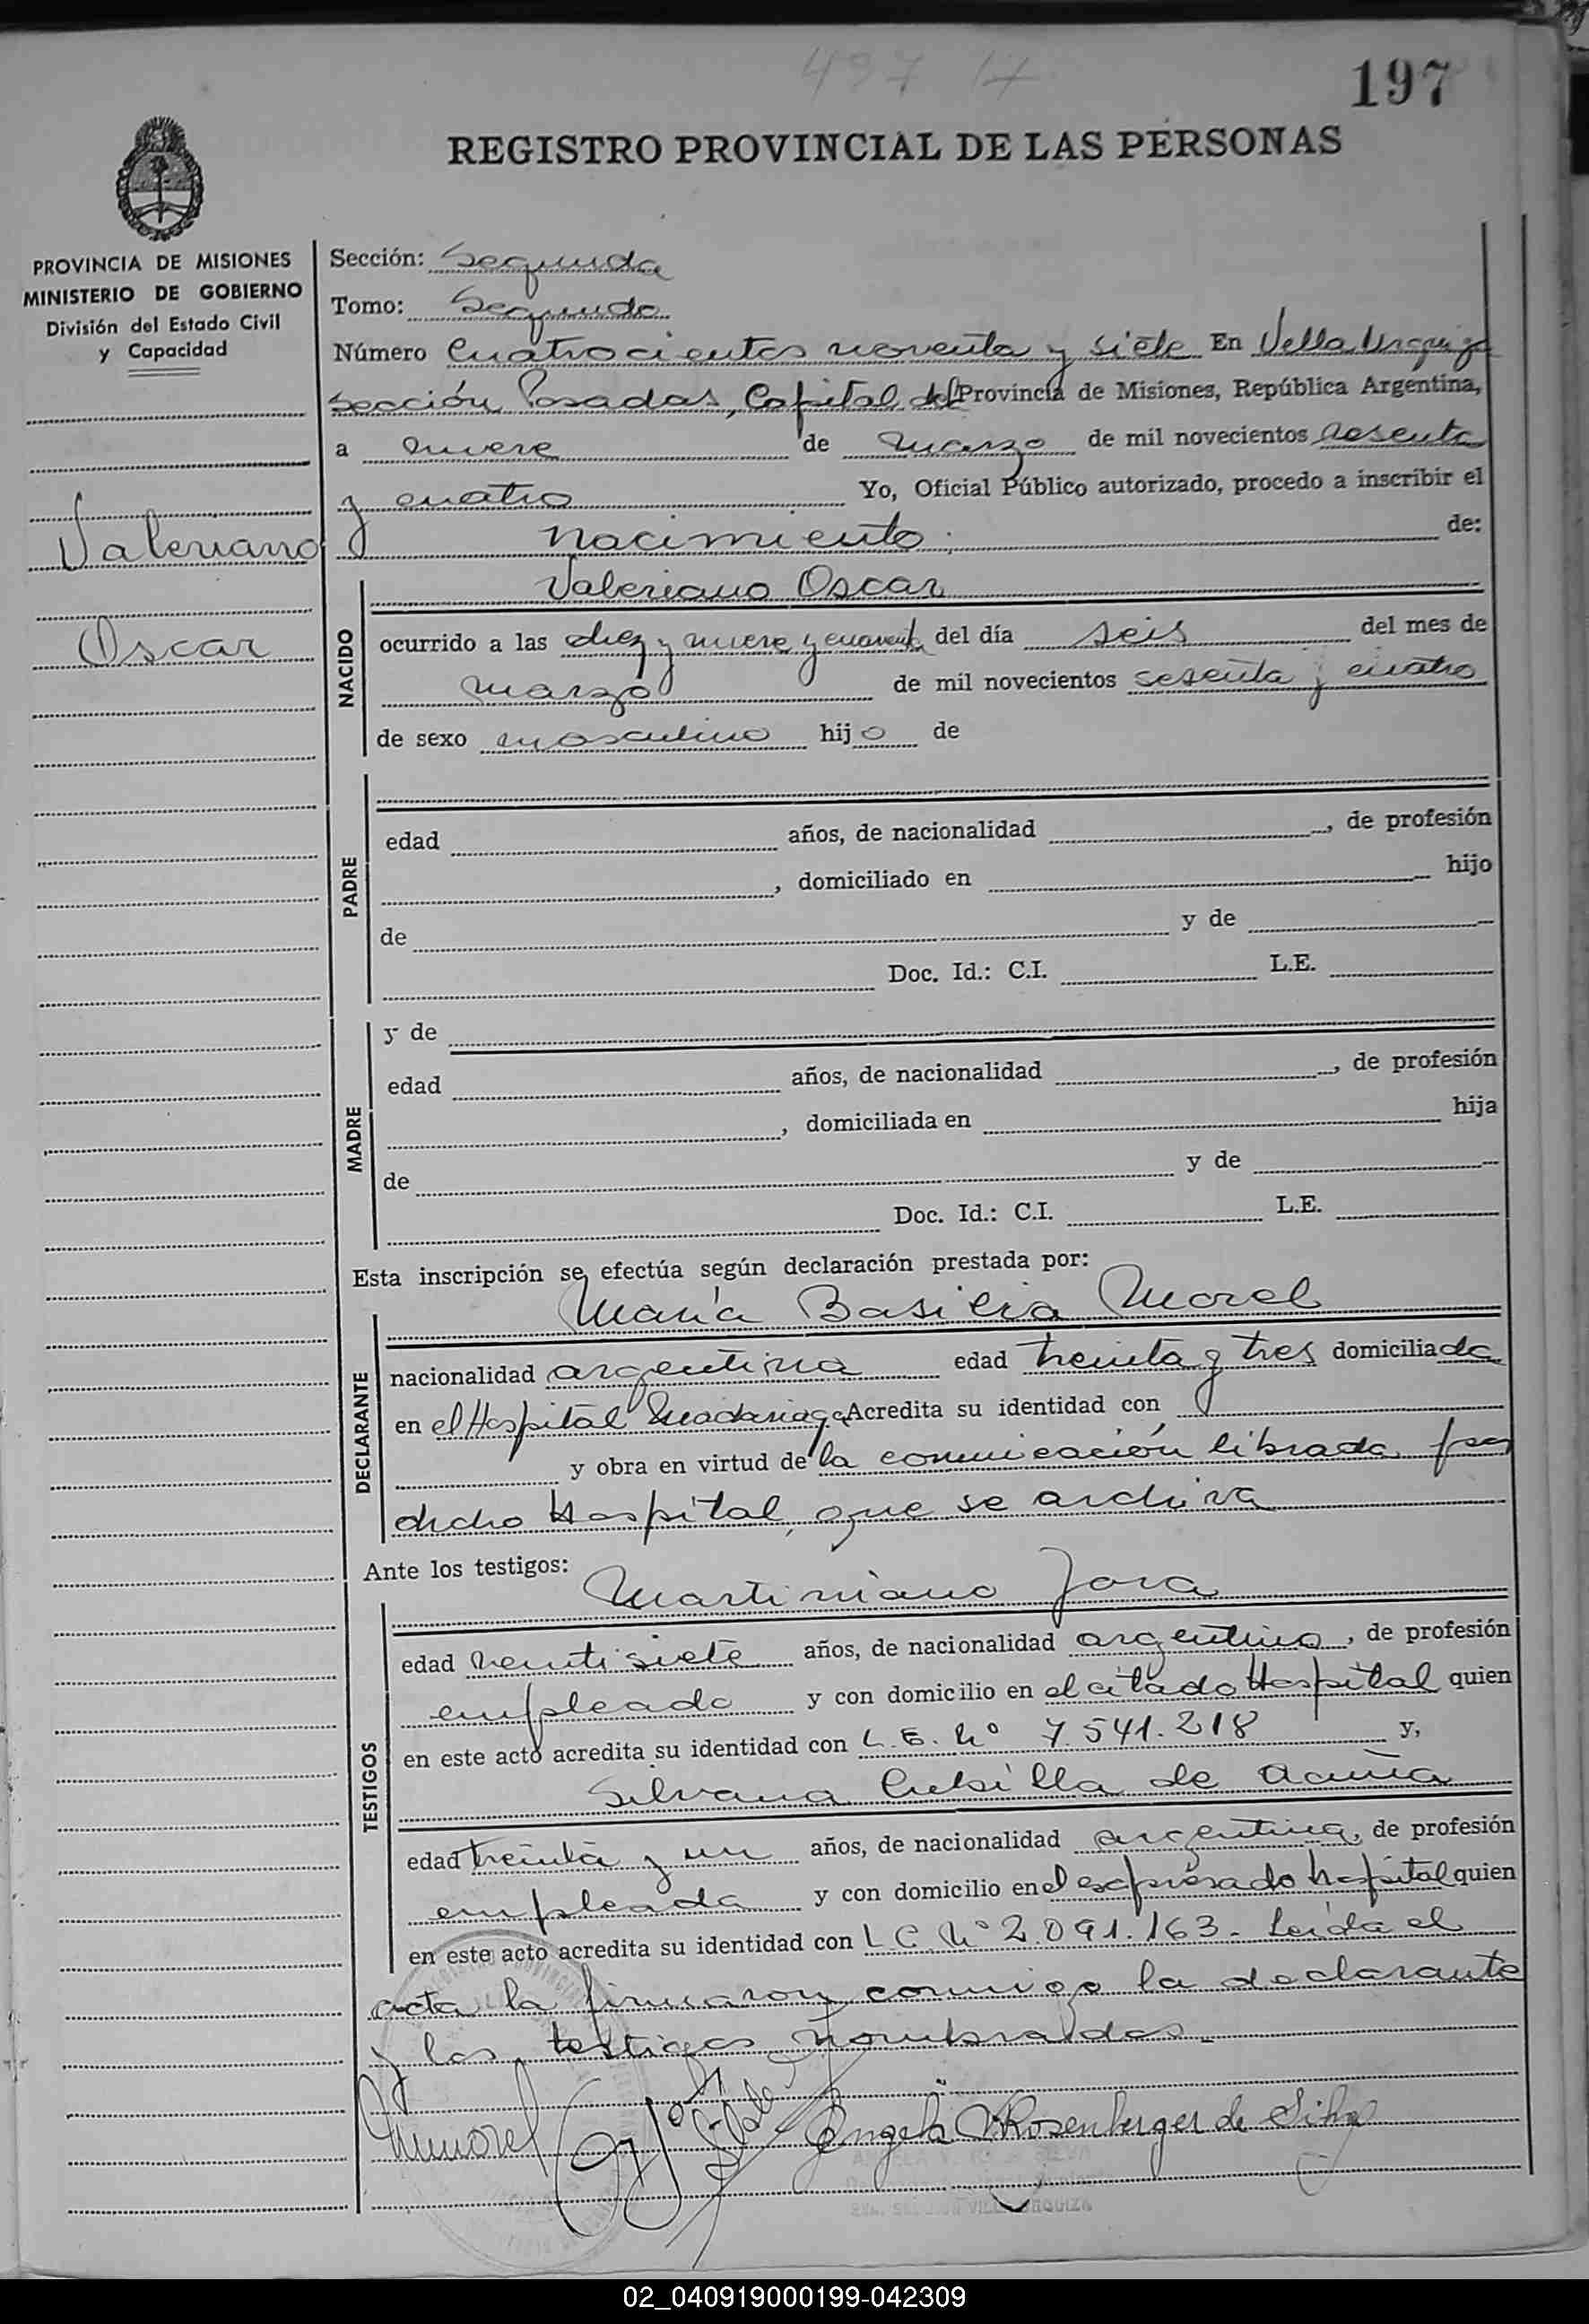 497 17
197
REGISTRO PROVINCIAL DE LAS PERSONAS
PROVINCIA DE MISIONES
MINISTERIO DE GOBIERNO
División del Estado Civil
y Capacidad
Valeriano
Oscar
Sección: Segunda
Tomo: Segundo
Número Cuatrocientos noventa y siete En Villa Urquiza
Sección Posadas, Capital de Provincia de Misiones, República Argentina,
a nueve de marzo de mil novecientos sesenta
y cuatro Yo, Oficial Público autorizado, procedo a inscribir el
nacimiento de:
NACIDO
Valeriano Oscar
ocurrido a las diez y nueve y cuarenta del día seis del mes de
marzo de mil novecientos sesenta y cuatro
de sexo masculino hijo de
PADRE
edad años, de nacionalidad , de profesión
, domiciliado en hijo
de y de
Doc. Id.: C.I. L.E.
MADRE
y de
edad años, de nacionalidad , de profesión
, domiciliada en hija
de y de
Doc. Id.: C.I. L.E.
Esta inscripción se efectúa según declaración prestada por:
DECLARANTE
María Basilia Morel
nacionalidad argentina edad treinta y tres domiciliada
en el Hospital Madariaga Acredita su identidad con
y obra en virtud de la comunicación librada por
dicho Hospital, que se archiva
Ante los testigos:
TESTIGOS
Martiniano Jara
edad veintisiete años, de nacionalidad argentino, de profesión
empleado y con domicilio en el citado Hospital quien
en este acto acredita su identidad con L.E. Nº 7.541.218 y,
Silvana Cubilla de Acuña
edad treinta y un años, de nacionalidad argentina, de profesión
empleada y con domicilio en el expresado hospital quien
en este acto acredita su identidad con L C Nº 2.091.163.- Leída el
acta la firmaron conmigo la declarante
y los testigos nombrados.-
Angela V. Rosenberger de Silva
02_040919000199-042309